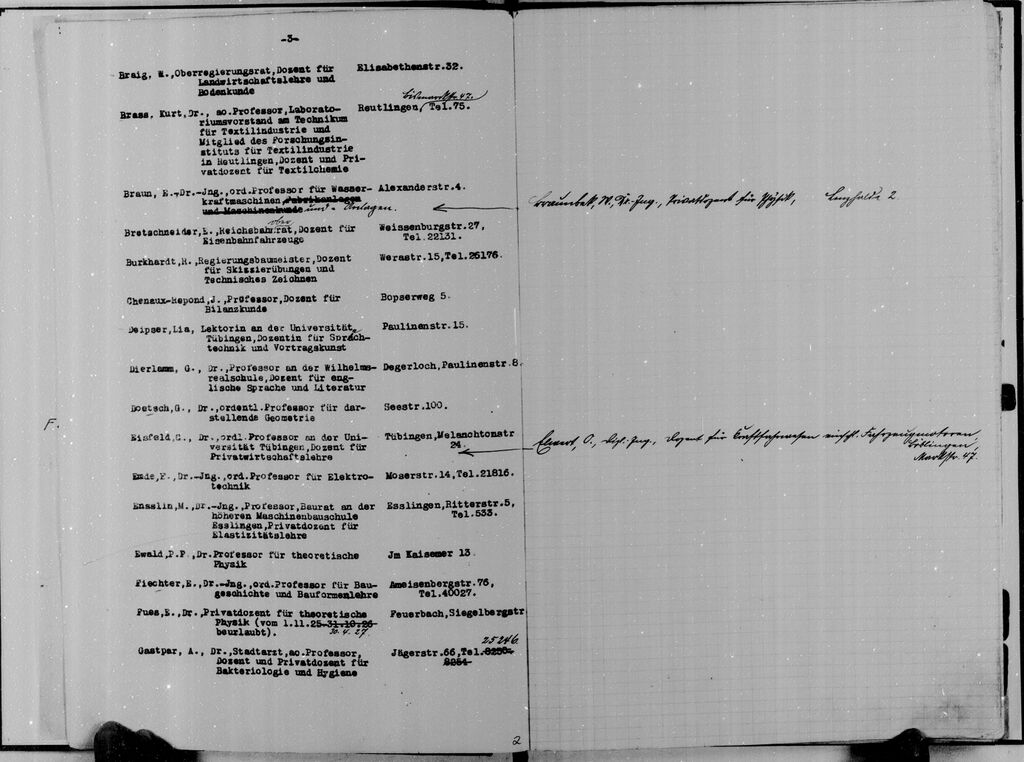 -3-
Braig, M.,Oberregierungsrat,Dozent für Elisabethenstr.32.
Landwirtschaftslehre und
Bodenkunde
Bismarckstr.47.
Brass, Kurt,Dr., ao.Professor,Laborato- Reutlingen, Tel.75.
riumsvorstand am Technikum
für Textilindustrie und
Mitglied des Forschungsin-
stituts für Textilindustrie
in Reutlingen,Dozent und Pri-
vatdozent für Textilchemie
Braun, E.,Dr.-Jng.,ord.Professor für Wasser- Alexanderstr.4.
kraftmaschinen Fabrikanlagen
und Maschinenkunde und - Anlagen.
Braunbek, W., Dr.-Ing., Privatdozent für Physik, Lenzhalde 2
ober
Bretschneider,E., Reichsbahnrat,Dozent für Weissenburgstr.27,
Eisenbahnfahrzeuge Tel.22131.
Burkhardt,R.,Regierungsbaumeister,Dozent Werastr.15,Tel.26176.
für Skizzierübungen und
Technisches Zeichnen
Chenaux-Repond,J.,Professor,Dozent für Bopserweg 5.
Bilanzkunde
Deipser,Lia, Lektorin an der Universität Paulinenstr.15.
Tübingen,Dozentin für Sprech-
technik und Vortragskunst
Dierlamm, G., Dr.,Professor an der Wilhelms- Degerloch,Paulinenstr.8.
realschule,Dozent für eng-
lische Sprache und Literatur
Doetsch,G., Dr.,ordentl.Professor für dar- Seestr.100.
stellende Geometrie
F.
Eisfeld,C., Dr.,ordl.Professor an der Uni- Tübingen,Melanchtonstr
versität Tübingen,Dozent für 24.
Privatwirtschaftslehre
O., Dipl.-Ing., Dozent für Kraftfahrwesen einschl. Fahrzeugmotoren
Böblingen
Marktstr. 47.
Emde,F.,Dr.-Jng.,ord.Professor für Elektro- Moserstr.14,Tel.21816.
technik
Ensslin,M.,Dr.-Jng.,Professor,Baurat an der Esslingen,Ritterstr.5,
höheren Maschinenbauschule Tel.533.
Esslingen,Privatdozent für
Elastizitätslehre
Ewald,P.P.,Dr.Professor für theoretische Jm Kaisemer 13.
Physik
Fiechter,E.,Dr.-Jng.,ord.Professor für Bau- Ameisenbergstr.76,
geschichte und Bauformenlehre Tel.40027.
Fues,E.,Dr.,Privatdozent für theoretische Feuerbach,Siegelbergstr
Physik (vom 1.11.25-31.10.26
beurlaubt). 30.4.27.
25246.
Gastpar, A., Dr.,Stadtarzt,ao.Professor, Jägerstr.66,Tel.
Dozent und Privatdozent für
Bakteriologie und Hygiene
2